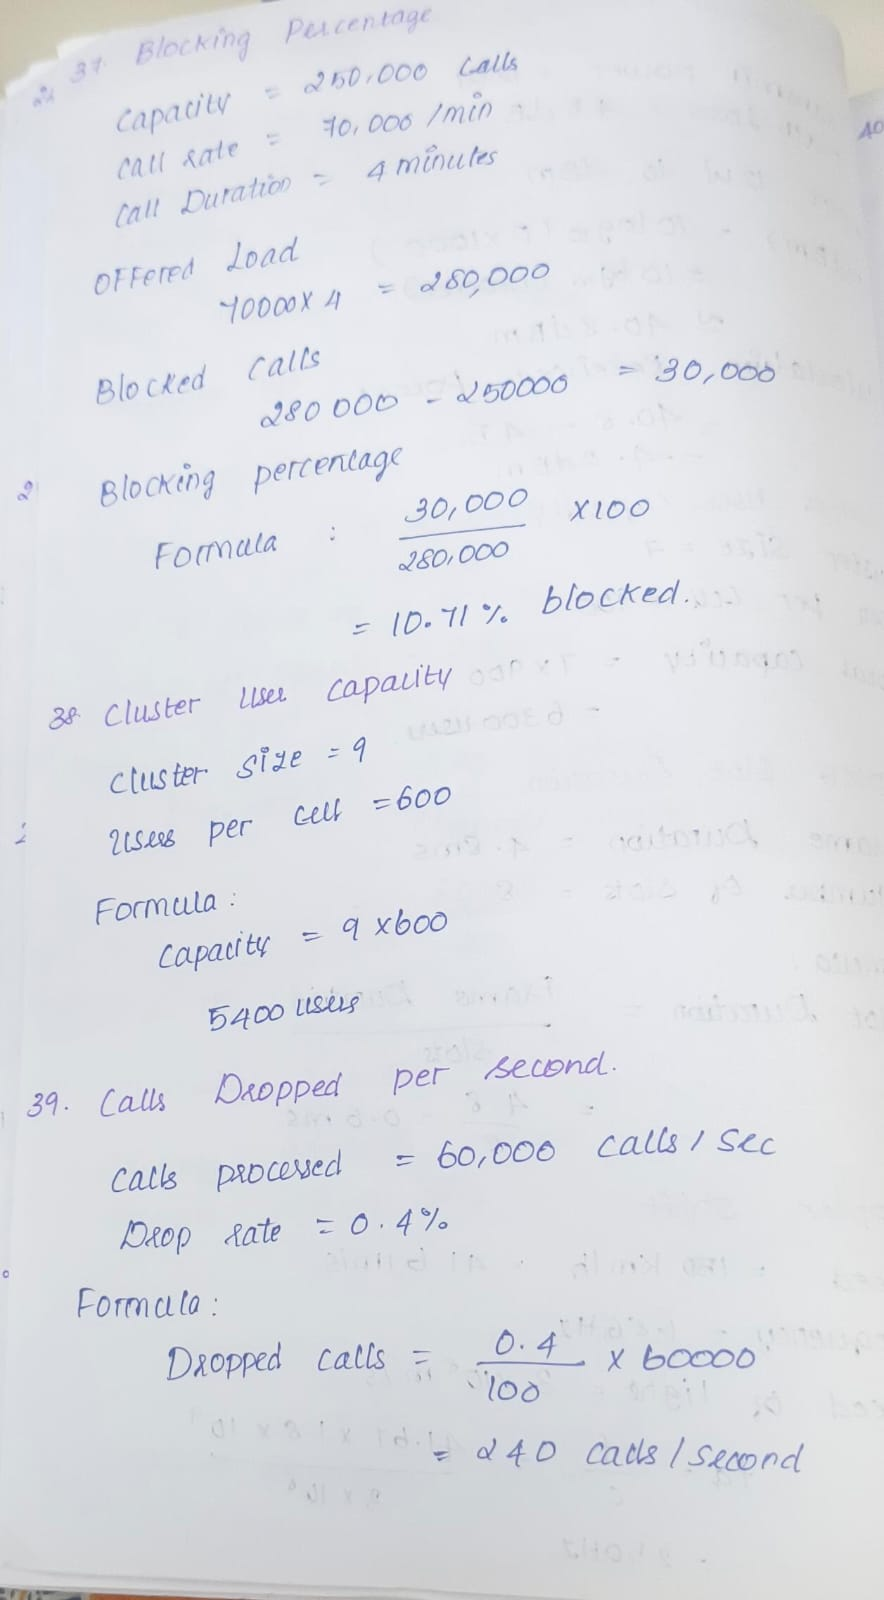 37. Blocking Percentage
Capacity = 250,000 Calls
Call rate = 70,000 /min
Call Duration = 4 minutes
Offered Load
70000 X 4 = 280,000
Blocked Calls
280 000 - 250000 = 30,000
Blocking percentage
Formula : 30,000 / 280,000 X 100
= 10.71 % blocked.
38. Cluster User Capacity
Cluster size = 9
Users per cell = 600
Formula :
Capacity = 9 x 600
5400 users
39. Calls Dropped per second.
Calls processed = 60,000 calls / sec
Drop rate = 0.4%
Formula :
Dropped calls = 0.4 / 100 x 60000
= 240 calls / second
40